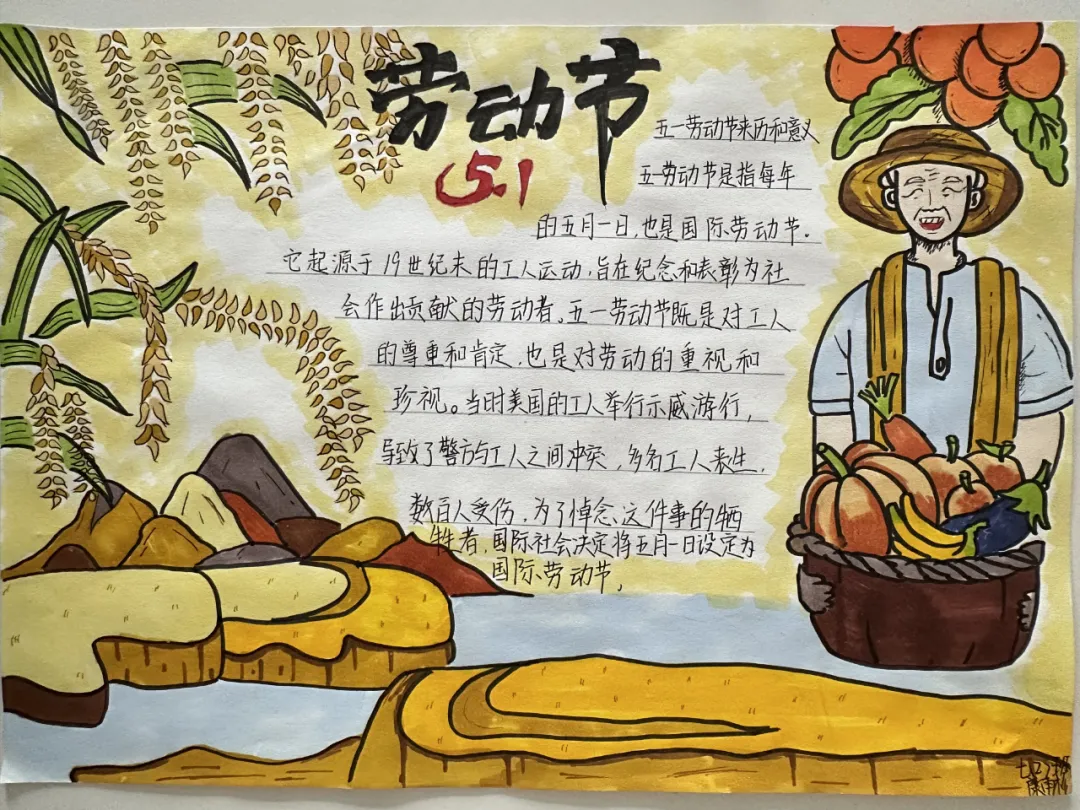 劳动节
5.1
五一劳动节来历和意义
五一劳动节是指每年
的五月一日,也是国际劳动节.
它起源于19世纪末的工人运动,旨在纪念和表彰为社
会作出贡献的劳动者。五一劳动节既是对工人
的尊重和肯定,也是对劳动的重视和
珍视。当时美国的工人举行示威游行,
导致了警方与工人之间冲突,多名工人丧生,
数百人受伤,为了悼念,这件事的牺
牲者,国际社会决定将五月一日设定为
国际劳动节,